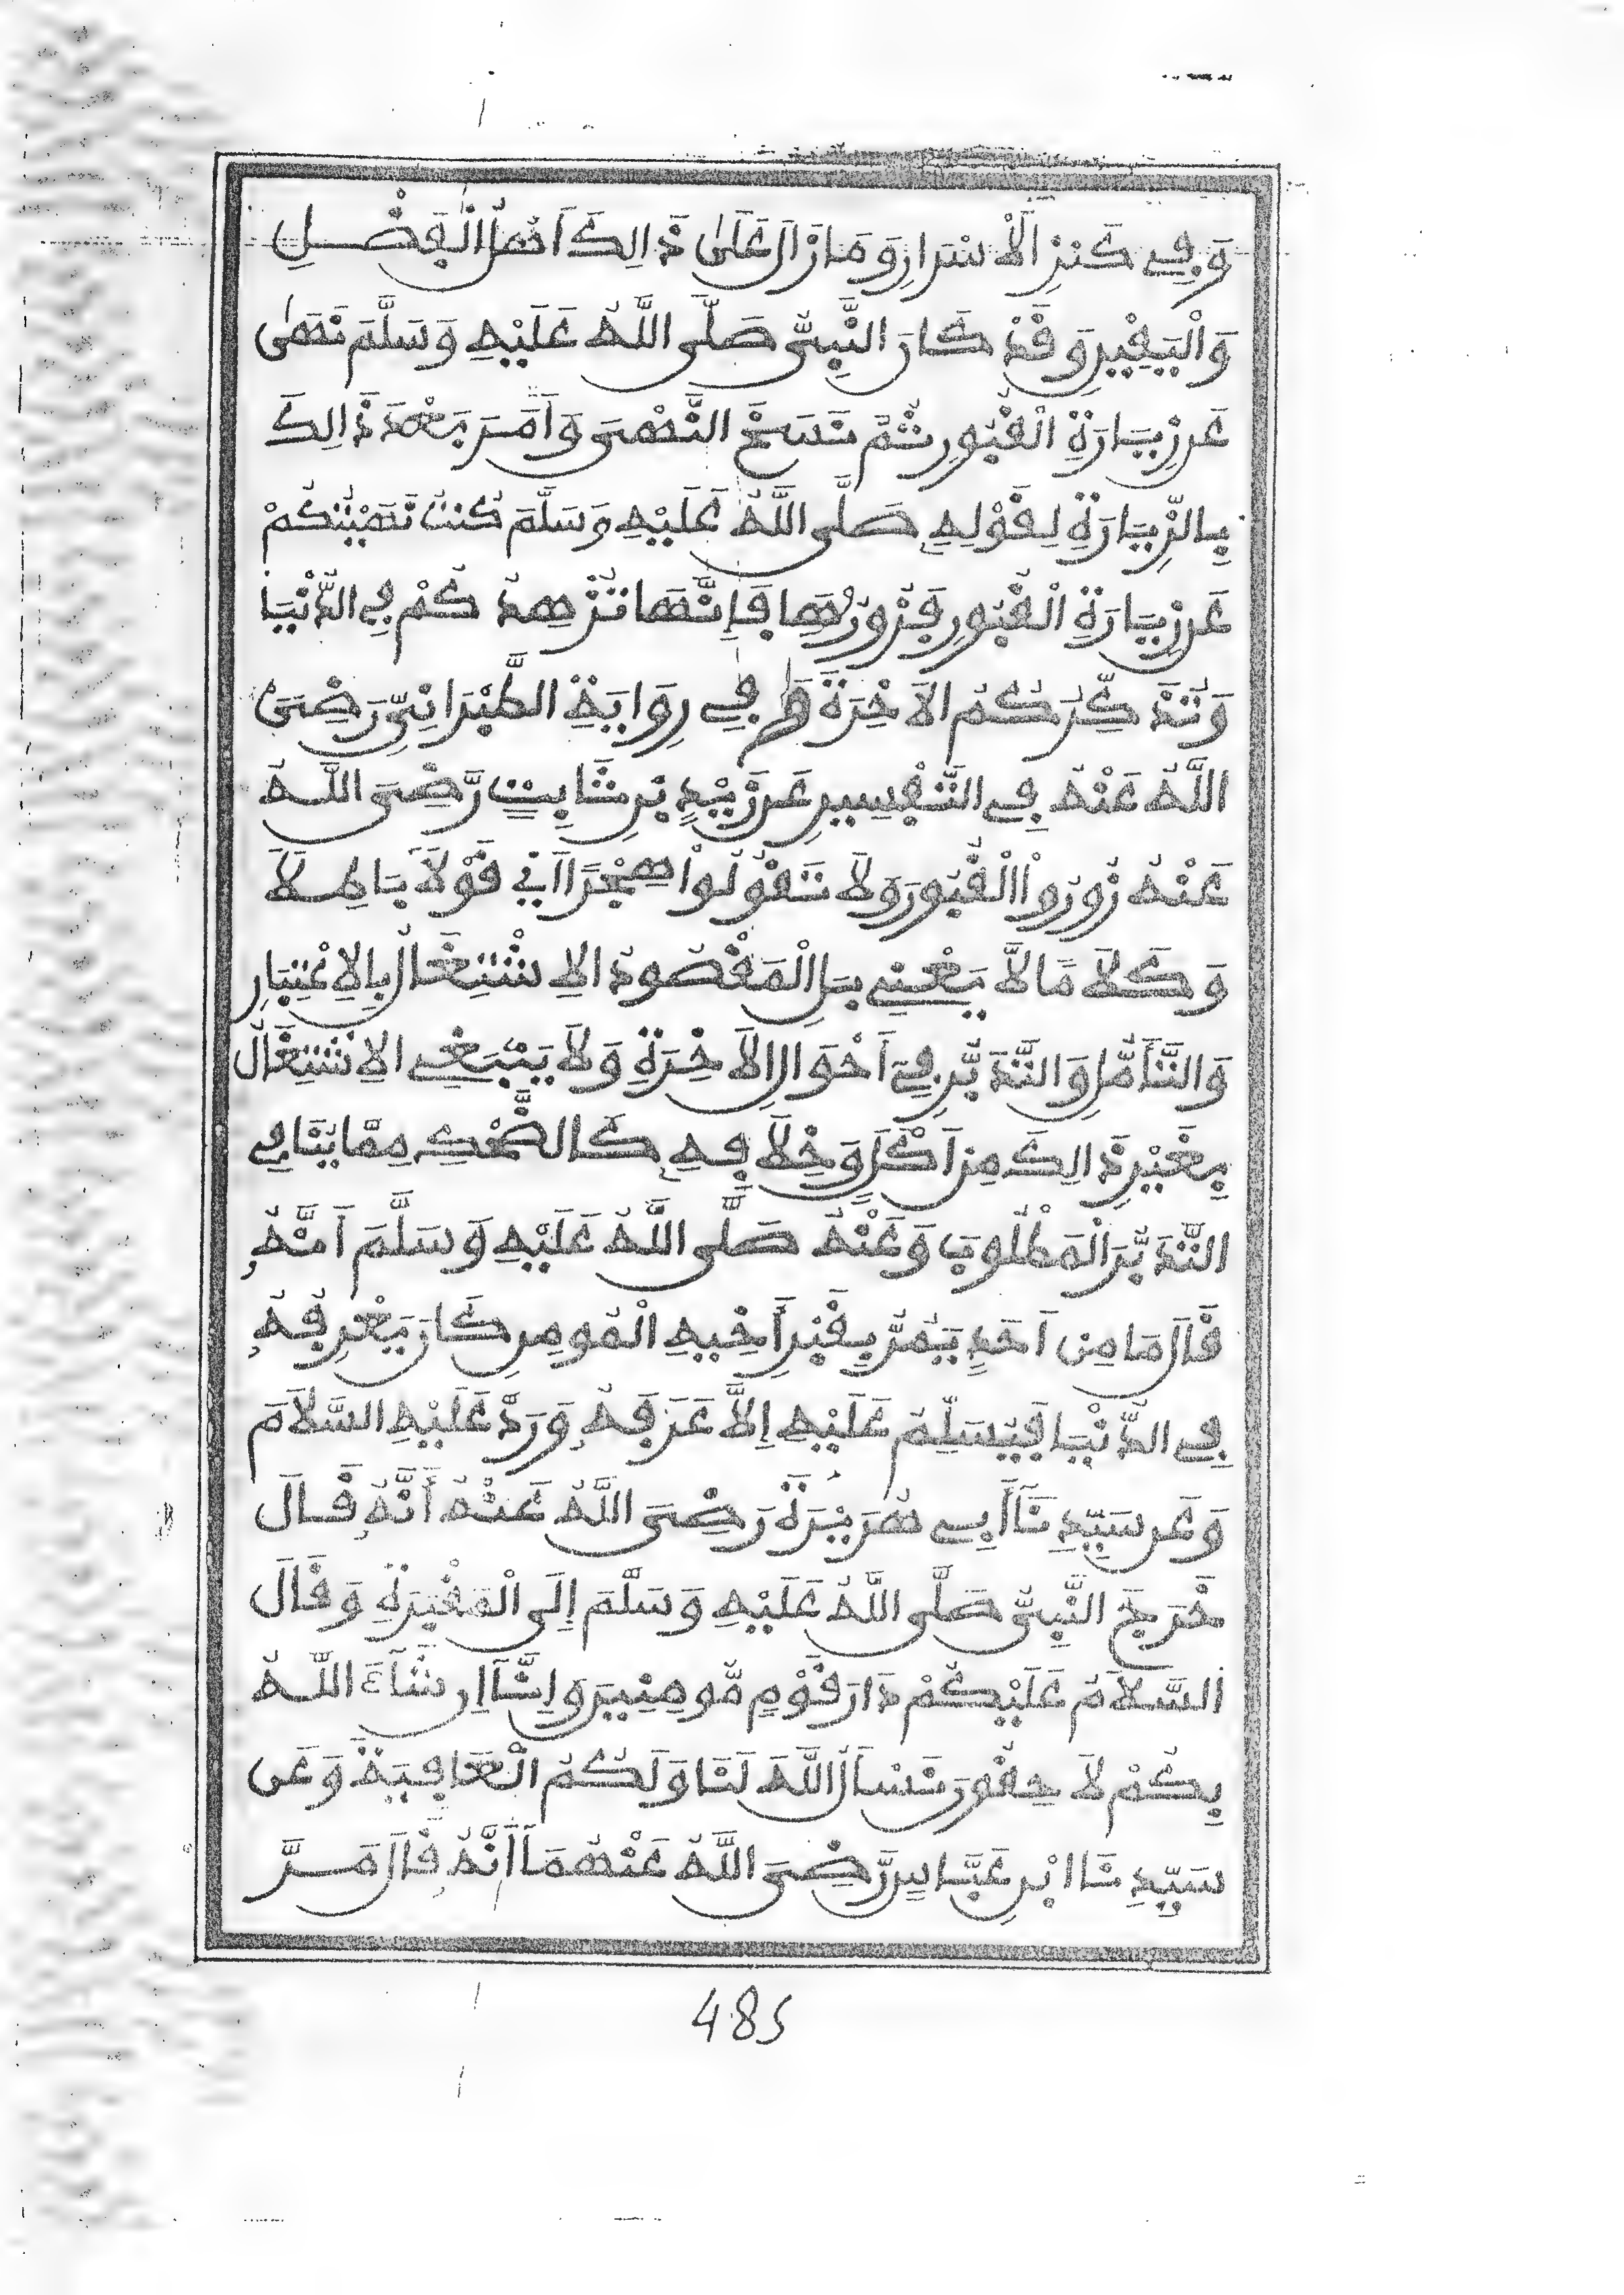 وَفِي كَنزِ الْأَسْرَارِ وَمَا زَالَ عَلَىٰ ذَالِكَ أَهْلُ الْفَضْلِ
وَالْيَقِينِ وَقَدْ كَانَ النَّبِيُّ صَلَّى اللَّهُ عَلَيْهِ وَسَلَّمَ نَهَىٰ
عَن زِيَارَةِ الْقُبُورِ ثُمَّ نَسَخَ النَّهْيَ وَأَمَرَ بَعْدَ ذَالِكَ
بِالزِّيَارَةِ لِقَوْلِهِ صَلَّى اللَّهُ عَلَيْهِ وَسَلَّمَ كُنتُ نَهَيْتُكُمْ
عَن زِيَارَةِ الْقُبُورِ فَزُورُوهَا فَإِنَّهَا تُزْهِدُكُمْ فِي الدُّنْيَا
وَتُذَكِّرُكُمُ الآخِرَةَ وَفِي رِوَايَةِ الطَّبَرَانِيِّ رَضِيَ
اللَّهُ عَنْهُ فِي التَّفْسِيرِ عَن زَيْدِ بْنِ ثَابِتٍ رَّضِيَ اللَّهُ
عَنْهُ زُورُواْ الْقُبُورَ وَلَا تَقُولُواْ هُجْرًا أَيْ قَوْلًا بَاطِلًا
وَكَلَامًا لَّا يَعْنِي بَلِ الْمَقْصُودُ الِاشْتِغَالُ بِالِاعْتِبَارِ
وَالتَّأَمُّلِ وَالتَّدَبُّرِ فِي أَحْوَالِ الآخِرَةِ وَلَا يَنْبَغِي الِاشْتِغَالُ
بِغَيْرِ ذَالِكَ مِنْ أَكْلٍ وَخِلَافِهِ كَالضَّحْكِ مِمَّا يُنَافِي
التَّدَبُّرَ الْمَطْلُوبَ وَعَنْهُ صَلَّى اللَّهُ عَلَيْهِ وَسَلَّمَ أَنَّهُ
قَالَ مَا مِنْ أَحَدٍ يَمُرُّ بِقَبْرِ أَخِيهِ الْمُومِنِ كَانَ يَعْرِفُهُ
فِي الدُّنْيَا فَيُسَلِّمُ عَلَيْهِ إِلَّا عَرَفَهُ وَرَدَّ عَلَيْهِ السَّلَامَ
وَعَن سَيِّدِنَا أَبِي هُرَيْرَةَ رَضِيَ اللَّهُ عَنْهُ أَنَّهُ قَالَ
خَرَجَ النَّبِيُّ صَلَّى اللَّهُ عَلَيْهِ وَسَلَّمَ إِلَى الْمَقْبَرَةِ وَقَالَ
السَّلَامُ عَلَيْكُمْ دَارَ قَوْمٍ مُّومِنِينَ وَإِنَّا إِن شَآءَ اللَّهُ
بِكُمْ لَاحِقُونَ نَسْأَلُ اللَّهَ لَنَا وَلَكُمُ الْعَافِيَةَ وَعَن
سَيِّدِنَا ابْنِ عَبَّاسٍ رَّضِيَ اللَّهُ عَنْهُمَا أَنَّهُ قَالَ مَرَّ
485